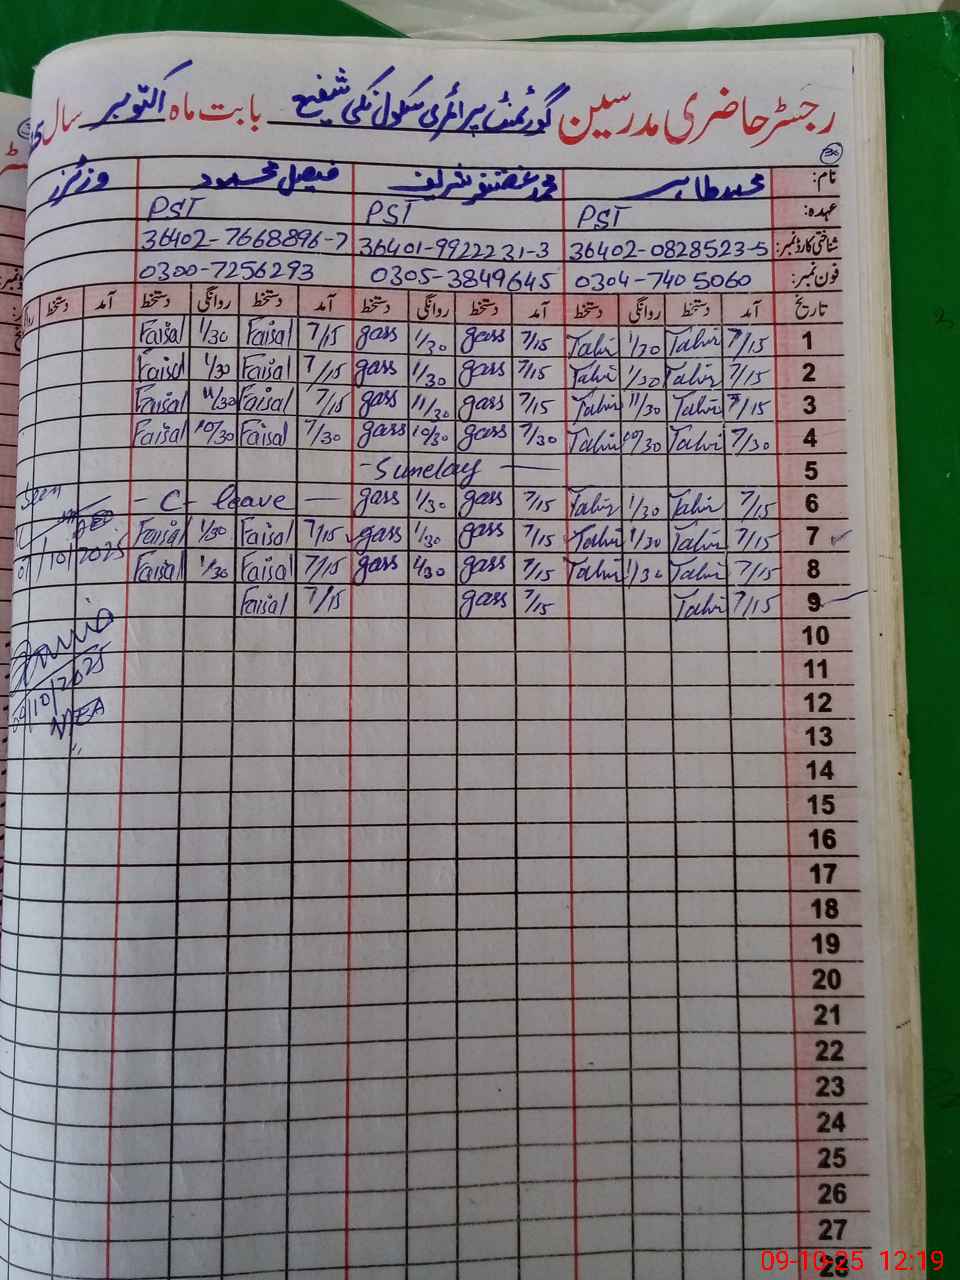 رجسٹر حاضری مدرسین گورنمنٹ پرائمری سکول نکی شفیع بابت ماہ اکتوبر سال
نام: محمد طاہر محمد غضنفر شریف فیصل محمود وزٹرز
عہدہ: PST PST PST
شناختی کارڈ نمبر: 36402-0828523-5 36401-9922231-3 36402-7668896-7
فون نمبر: 0304-7405060 0305-3849645 0300-7256293
تاریخ آمد دستخط روانگی دستخط آمد دستخط روانگی دستخط آمد دستخط روانگی دستخط آمد دستخط
1 7/15 Tahir 1/30 Tahir 7/15 gass 1/30 gass 7/15 Faisal 1/30 Faisal
2 7/15 Tahir 1/30 Tahir 7/15 gass 1/30 gass 7/15 Faisal 1/30 Faisal
3 7/15 Tahir 11/30 Tahir 7/15 gass 11/30 gass 7/15 Faisal 11/30 Faisal
4 7/30 Tahir 10/30 Tahir 7/30 gass 10/30 gass 7/30 Faisal 10/30 Faisal
5 - Sunday —
6 7/15 Tahir 1/30 Tahir 7/15 gass 1/30 gass - C- leave — Seen
7 7/15 Tahir 1/30 Tahir 7/15 gass 1/30 gass 7/15 Faisal 1/30 Faisal
8 7/15 Tahir 1/30 Tahir 7/15 gass 1/30 gass 7/15 Faisal 1/30 Faisal 07/10/2025
9 7/15 Tahir 7/15 gass 7/15 Faisal
10
11
12 09/10/2025
13 MEA
14
15
16
17
18
19
20
21
22
23
24
25
26
27
28
09-10-25 12:19